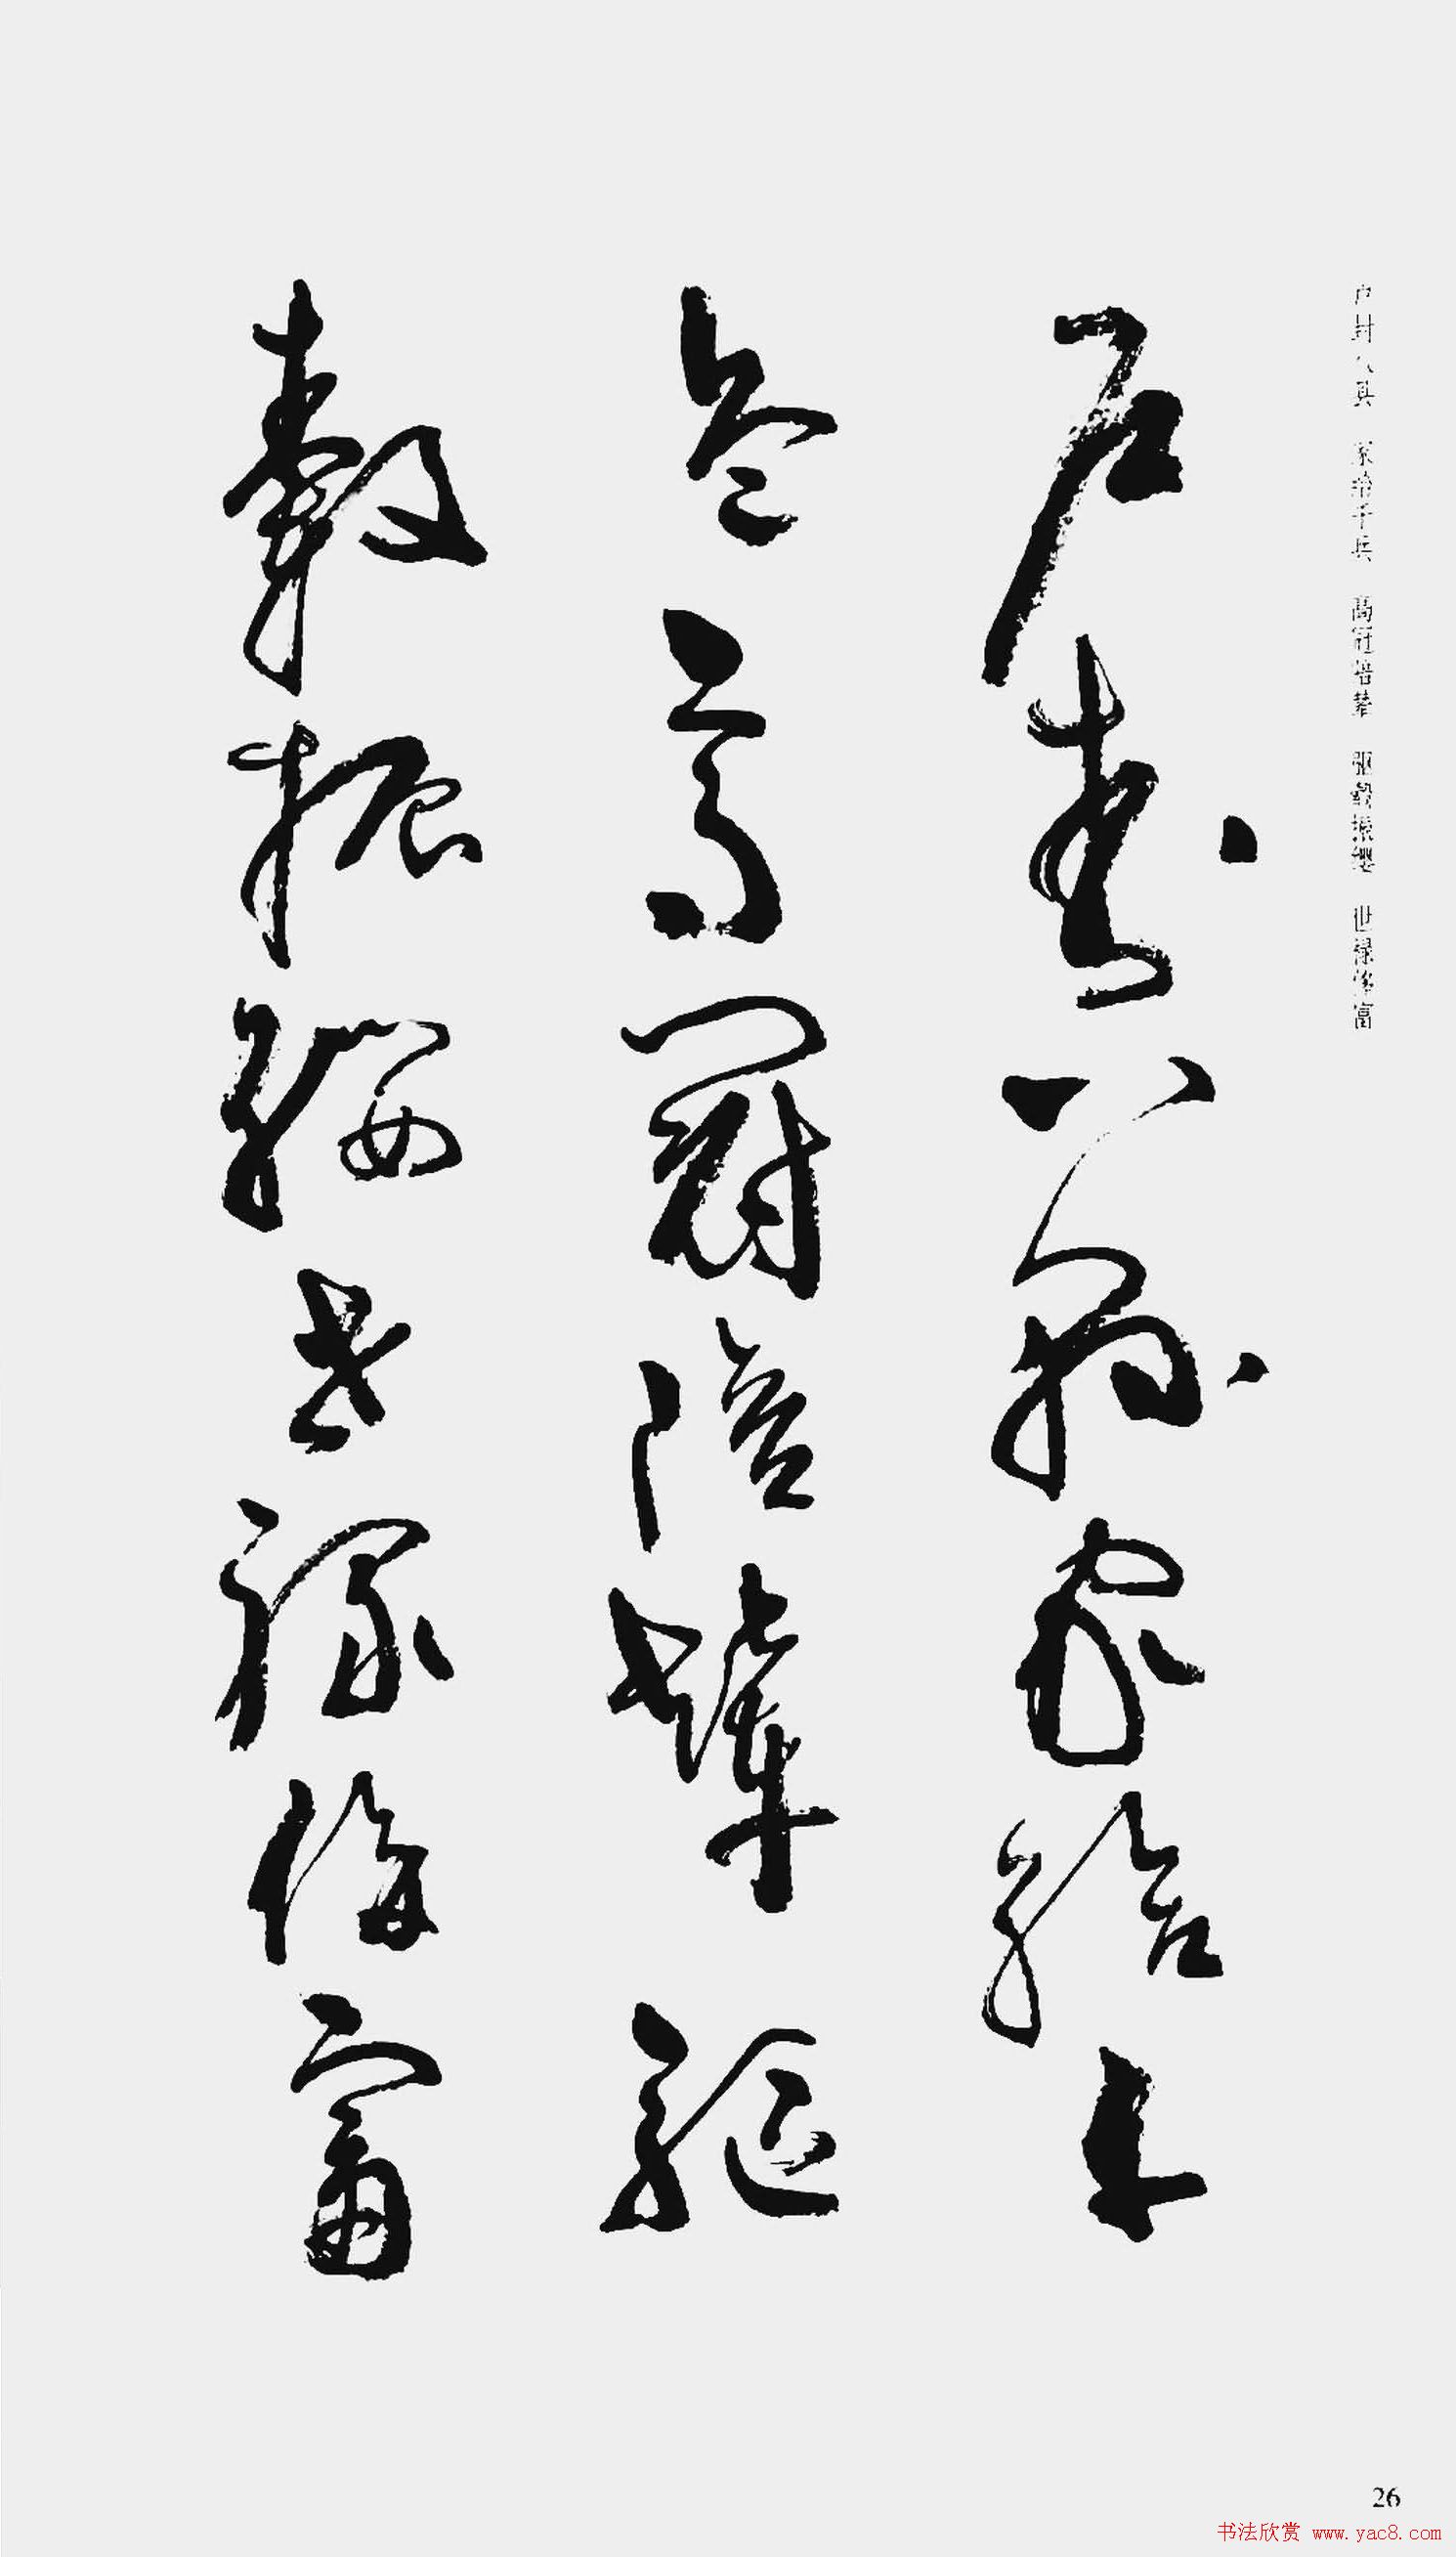 户封八县 家给千兵 高冠陪辇 驱毂振缨 世禄侈富
戶封八縣家給千
兵高冠陪輦驅
轂振纓世祿侈富
26
书法欣赏 www.yac8.com